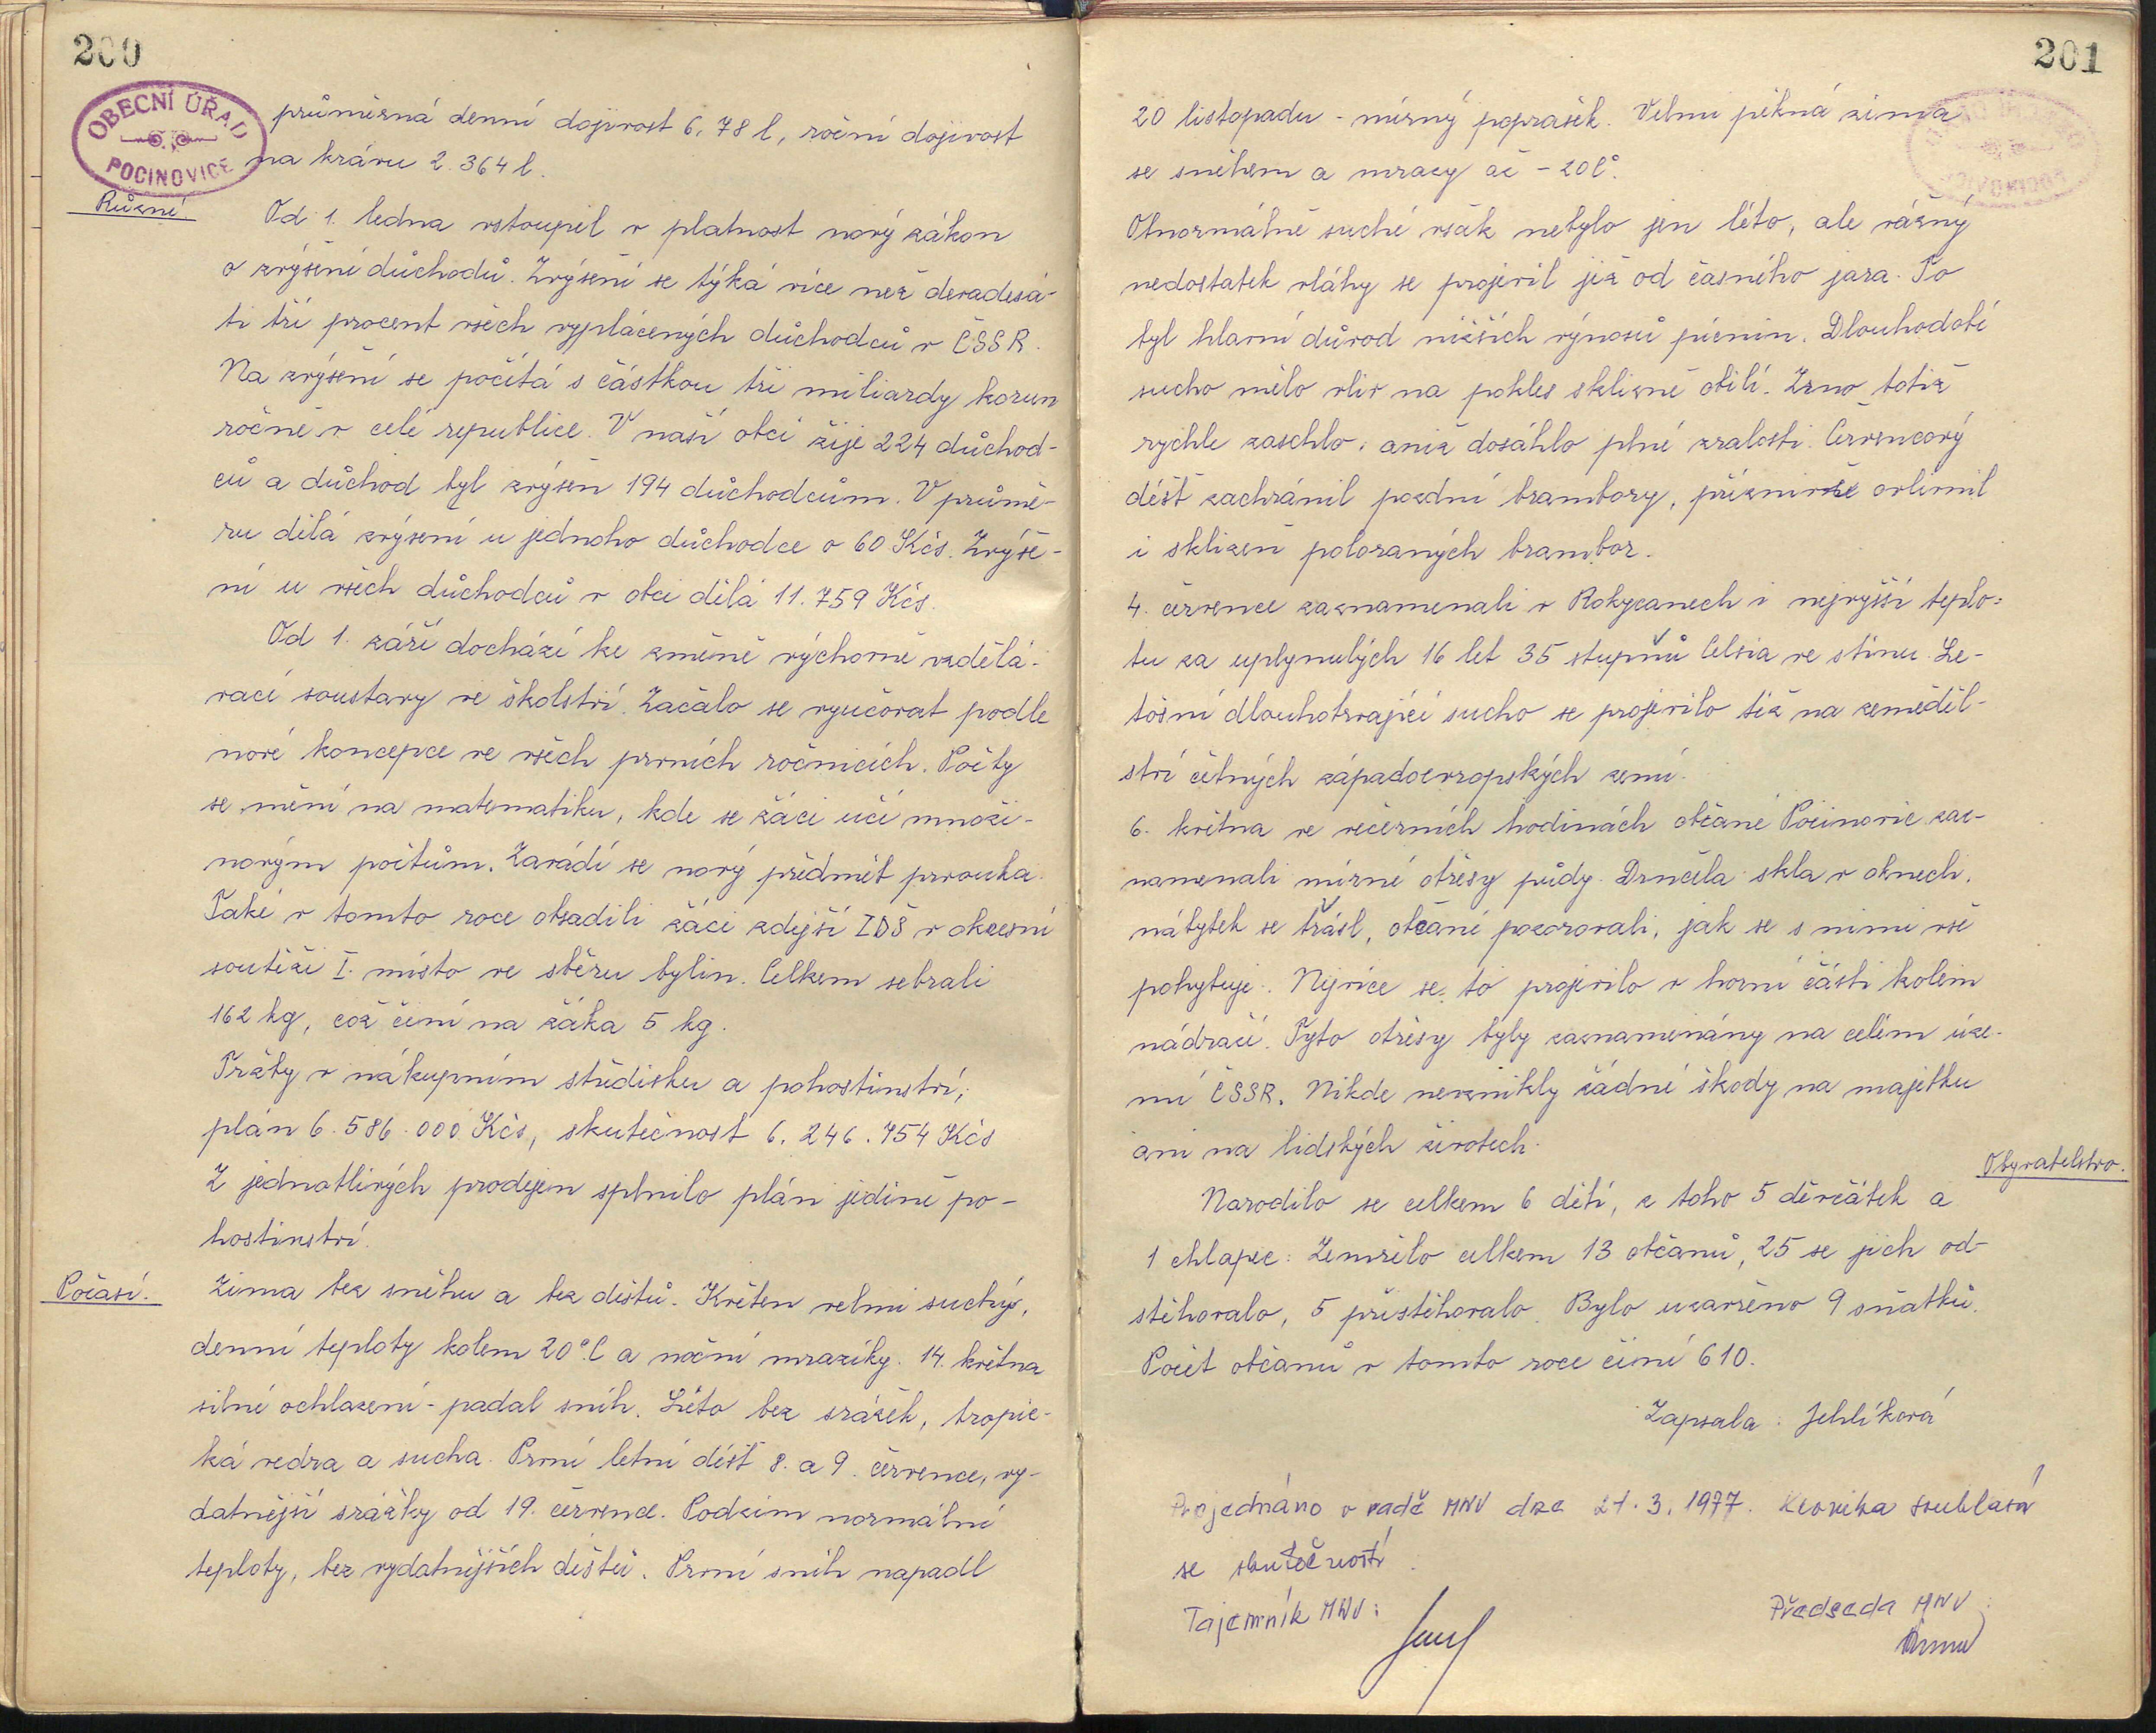 200
OBECNÍ ÚŘAD
POCINOVICE
průměrná denní dojivost 6,78 l, roční dojivost
na krávu 2.364 l.
Různé.
Od 1. ledna vstoupil v platnost nový zákon
o zvýšení důchodů. Zvýšení se týká více než devadesá-
ti tří procent všech vyplácených důchodců v ČSSR.
Na zvýšení se počítá s částkou tři miliardy korun
ročně v celé republice. V naší obci žije 224 důchod-
ců a důchod byl zvýšen 194 důchodcům. V průmě-
ru dělá zvýšení u jednoho důchodce o 60 Kčs. Zvýše-
ní u všech důchodců v obci dělá 11.759 Kčs.
Od 1. září dochází ke změně výchovně vzdělá-
vací soustavy ve školství. Začalo se vyučovat podle
nové koncepce ve všech prvních ročnících. Počty
se mění na matematiku, kde se žáci učí množi-
novým počtům. Zavádí se nový předmět prvouka.
Také v tomto roce obsadili žáci zdejší ZDŠ v okresní
soutěži I. místo ve sběru bylin. Celkem sebrali
162 kg, což činí na žáka 5 kg.
Tržby v nákupním středisku a pohostinství;
plán 6.586.000 Kčs, skutečnost 6.246.754 Kčs
Z jednotlivých prodejen splnilo plán jedině po-
hostinství.
Počasí.
Zima bez sněhu a bez dešťů. Květen velmi suchý,
denní teploty kolem 20°C a noční mrazíky. 14. května
silné ochlazení - padal sníh. Léto bez srážek, tropic-
ká vedra a sucha. První letní déšť 8. a 9. července, vy-
datnější srážky od 19. července. Podzim normální
teploty, bez vydatnějších dešťů. První sníh napadl
201
20 listopadu - mírný poprašek. Velmi pěkná zima
se sněhem a mrazy až - 20 C°.
Abnormálně suché však nebylo jen léto, ale vážný
nedostatek vláhy se projevil již od časného jara. To
byl hlavní důvod nižších výnosů pícnin. Dlouhodobé
sucho mělo vliv na pokles sklizně obilí. Zrno totiž
rychle zaschlo, aniž dosáhlo plné zralosti. Červencový
déšť zachránil pozdní brambory, příznivě ovlivnil
i sklizeň poloraných brambor.
4. července zaznamenali v Rokycanech i nejvyšší teplo-
tu za uplynulých 16 let 35 stupňů Celsia ve stínu. Le-
tošní dlouhotrvající sucho se projevilo též na zeměděl-
ství četných západoevropských zemí.
6. května ve večerních hodinách občané Pocinovic zaz-
namenali mírné otřesy půdy. Drnčela skla v oknech,
nábytek se třásl, občané pozorovali, jak se s nimi vše
pohybuje. Nejvíce se to projevilo v horní části kolem
nádraží. Tyto otřesy byly zaznamenány na celém úze-
mí ČSSR. Nikde nevznikly žádné škody na majetku
ani na lidských životech.
Obyvatelstvo.
Narodilo se celkem 6 dětí, z toho 5 děvčátek a
1 chlapec. Zemřelo celkem 13 občanů, 25 se jich od-
stěhovalo, 5 přistěhovalo. Bylo uzavřeno 9 sňatků.
Počet občanů v tomto roce činí 610.
Zapsala: Jehlíková
Projednáno v radě MNV dne 21.3.1977. Kronika souhlasí
se skutečností.
Tajemník MNV:
Předseda MNV: